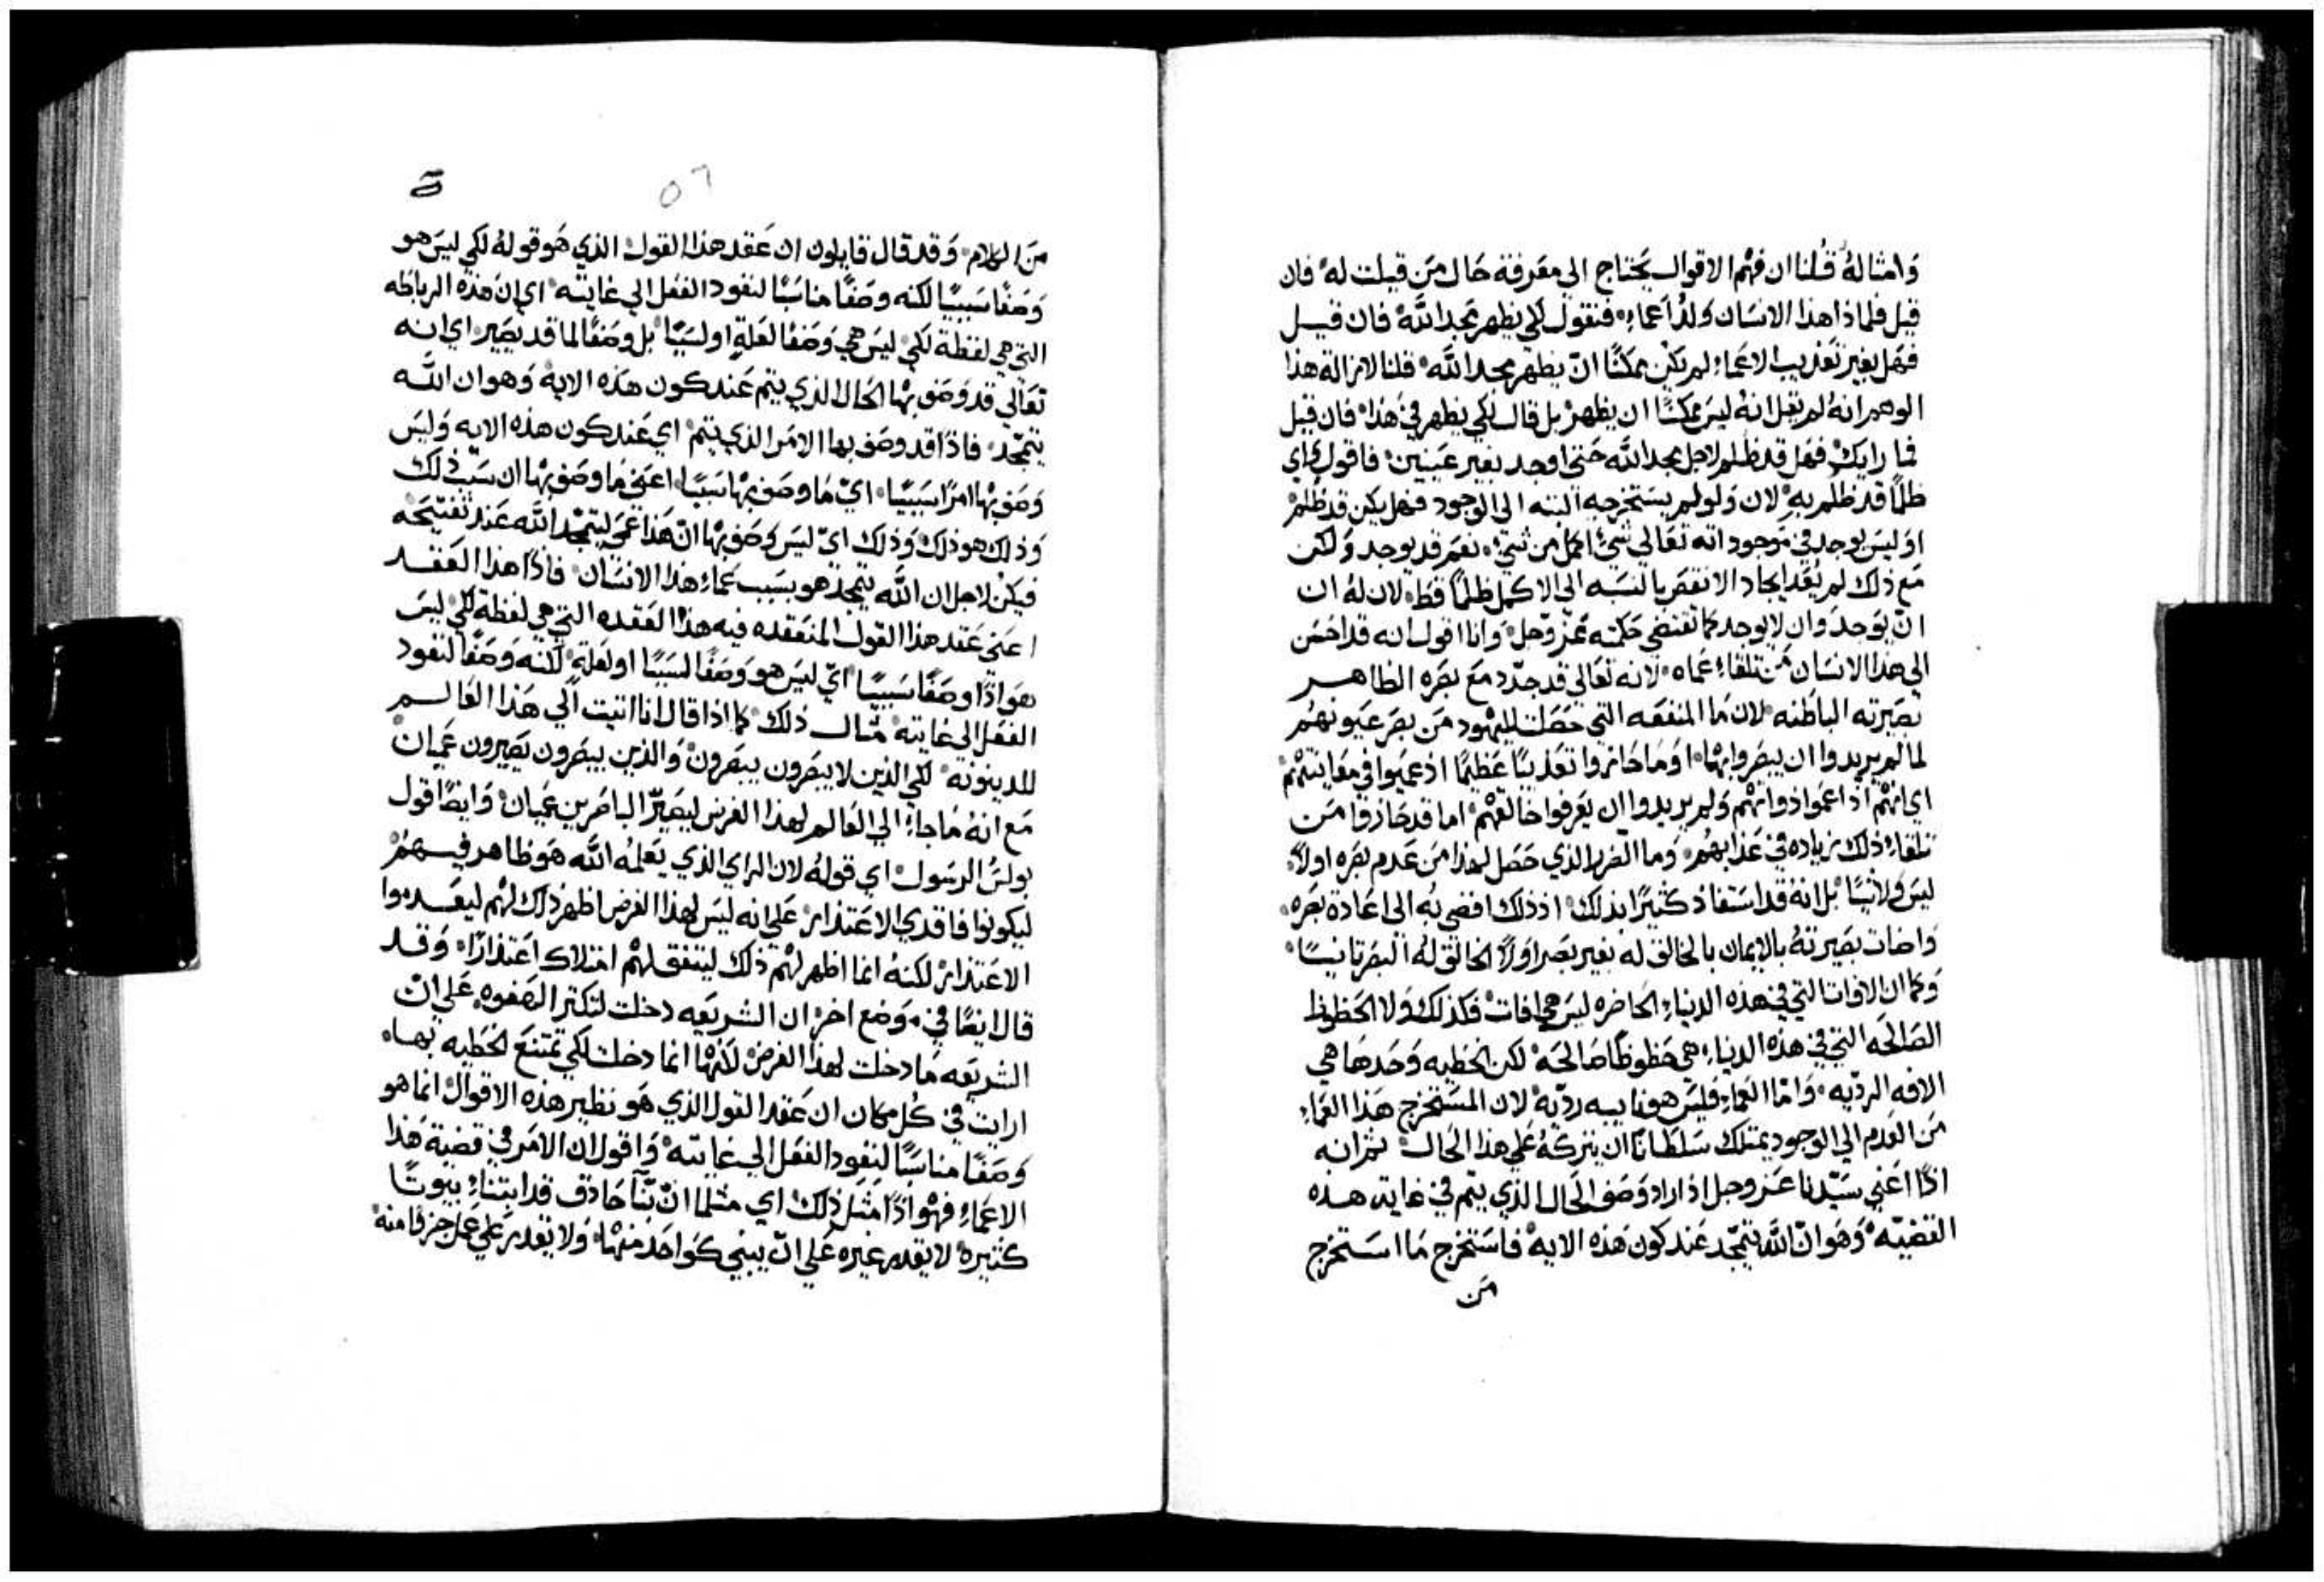 وَامثاله قُلنا ان فهم الاقوال يحتاج الى معَرفة حَال مَن قيلت له فان
قيل فلماذا هذا الانسَان وَلدُ اعَماء فنقول لكي يظهر مجد اللَّه فان قيل
فهَل بغير تعَذيب الاعَماء لم يكن ممكنًا انّ يظهر مجد اللَّه قلنا لازالة هذا
الوهم انهُ لم يقل انهُ ليسَ ممكنًا ان يظهر بل قال لكي يظهر في هَذا فان قيل
فما رايك فهَل قد ظلم لاجل مجد اللَّه حَتى اوجد بغير عَينين فاقول واي
ظلمًا قد ظلم به لان وَلو لم يستخرجه البته الى الوجود فهل يكن قد ظُلم
اوَ ليسَ يوجد في مَوجوداته تعَالي شيء اكمل من شيء نعَم قد يوجد وَلكن
مَع ذلك لم يُعَد ايجاد الانقصَ بالنسَبه الى الاكمل ظلمًا قط لان لهُ ان
انّ يوَجد وَان لا يوجد كما تقتضي حَكمته عَزّ وَجل وَانا اقول انه قد احسَن
الي هذا الانسَان مَن تلقاء عَماه لانه تعَالي قد جدّد مَع بصَره الظاهر
بصَيرته الباطنه لان مَا المنفعَه التي حَصَلت لليهود مَن بصَر عَيونهُم
لما لم يريدوا ان يبصَروا بها اوَ مَا حَازوا تعَذيبًا عَظيمًا اذ عَميوا في معَاينتهم
اي انهم اذ اعَموا ذواتهم وَلم يريدوا ان يعَرفوا خالقهم اما قد حَازوا مَن
تلقاء ذلك زياده في عَذابهُم وَما الضَرر الذي حَصَل لهذا مَن عَدم بصَره اولاً
ليسَ وَلا شيًا بل انهُ قد اسَتفاد كثيرًا بذلك اذ ذلك افضي به الى اعَادة بصَره
وَاضات بصَيرتهُ بالايمان بالخالق له بغير بصَر اوَلاً الخالق لهُ البصَر ثانيًا
وَكما ان الافات التي في هذه الدنياء الحَاضره ليسَ هي افات فكذلك وَلا الحَظوظ
الصَالحَه التي في هذه الدنياء هي حَظوظًا صَالحَة لكن الخَطيه وَحَدهَا هي
الافه الرديه وَامّا العَماء فليسَ هو فنا بيه رديّة لان المسَتخرج هَذا العَماء
مَن العَدم الي الوجود يمتلك سَلطَانًا ان يتركهُ عَلي هذا الحَال ثم انه
اذًا اعَني سَيّدنا عَز وجل اذ اراد وَصَف الحَال الذي يتم في غاية هذه
القضيّه وَهَو انّ اللَّه يتمجّد عَند كون هَذه الايه فاسَتخرج مَا اسَتخرج
مَن
٥٦
مَن الكلام وَقد قال قايلون ان عَقد هذا القول الذي هَو قولهُ لكي ليسَ هو
وَصَفًا سَببيًا لكنه وصَفًا مناسَبًا لنفود الفعَل الي غايته اي ان هَذه الرباطَه
التي هي لفظة لكي ليسَ هي وَصَفًا لعَلةٍ او لسَببًا بل وصَفًا لما قد يصَير اي انه
تعَالي قد وَصَف بها الحَال الذي يتم عَند كون هَذه الايه وَهو ان اللَّه
يتمجّد فاذًا قد وصَف بها الامَر الذي يتم اي عَند كون هذه الايه وَليسَ
وَصَف بها امرًا سَببيًا ايّ مَا وصَف بها سَببًا اعَني مَا وصَف بها ان سَبّب ذلك
وَذلك هو ذلك وَذلك ايّ ليسَ وَصَف بها انّ هَذا عَمي ليتمجّد اللَّه عَند تفتيحَه
فيكن لاجل ان اللَّه يتمجد هو بسَبب عَماء هذا الانسَان فاذًا هذا العَقد
اعَني عَقد هذا القول المنعَقده فيه هذا العَقده التي هي لفظة لكي ليسَ
هوَ اذًا وصَفًا سَببيًا ايّ ليسَ هو وَصَفًا لسَببًا او لعَلةٍ لكنه وَصَفًا لنفود
الفعَل الي غايته مثال ذلك كما اذا قال انا اتيت الي هَذا العَالم
للدينونه لكي الذين لا يبصَرون يبصَرون وَالذين يبصَرون يصَيرون عَميان
مَع انهُ مَا جاء الي العَالم لهذا الغرض ليصَيّر الباصَرين عَميان وَايضًا قول
بولسَ الرسَول اي قولهُ لان الراي الذي يعَلمهُ اللَّه هَو ظاهر فيهم
ليكونوا فاقدي الاعَتذار عَلي انه ليسَ لهذا الغرض اظهر ذلك لهم ليعَدموا
الاعَتذار لكنهُ انما اظهر لهم ذلك ليتفق لهم امتلاك اعَتذارًا وَقد
قال ايضًا في مَوضع اخر ان الشريعَه دخلت لتكثر الهَفوه عَلي انّ
الشريعَه مَا دخلت لهذا الغرض لكنها انما دخلت لكي تمتنعَ الخَطيه بها
ارايت في كُل مكان ان عَقد القول الذي هَو نظير هذه الاقوال انما هو
وصَفًا مناسَبًا لنفود الفعَل الي غايته وَاقول ان الامَر في قضية هَذا
الاعَماء فهوَ اذًا مَثل ذلك اي مثلما انّ بنّآ حَاذق قد ابتناء بيوتًا
كثيره لا يقدر غيره عَلي انّ يبني كوَاحَد منها وَلا يقدر عَلي عَمل جزوًا منه